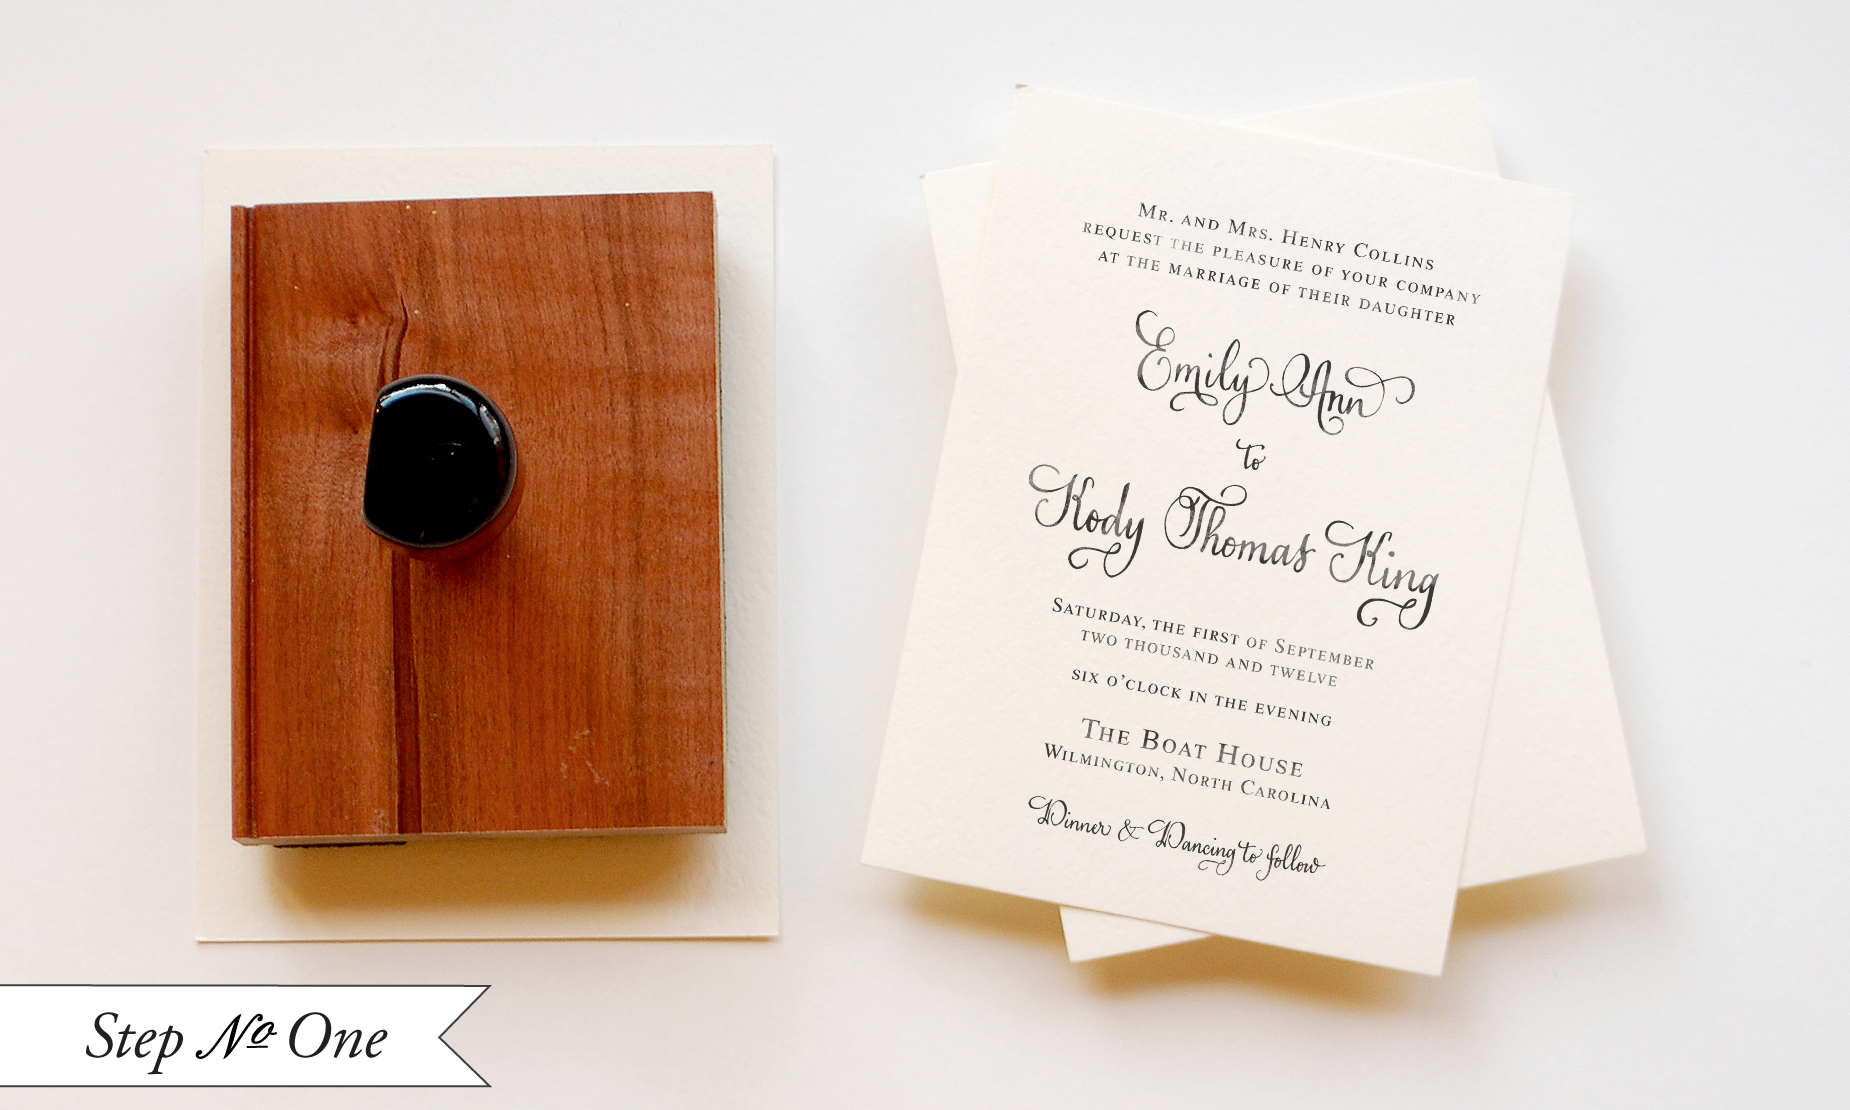 Mr. and Mrs. Henry Collins
request the pleasure of your company
at the marriage of their daughter
Emily Ann
to
Kody Thomas King
Saturday, the first of September
two thousand and twelve
six o'clock in the evening
The Boat House
Wilmington, North Carolina
Dinner & Dancing to follow
Step № One